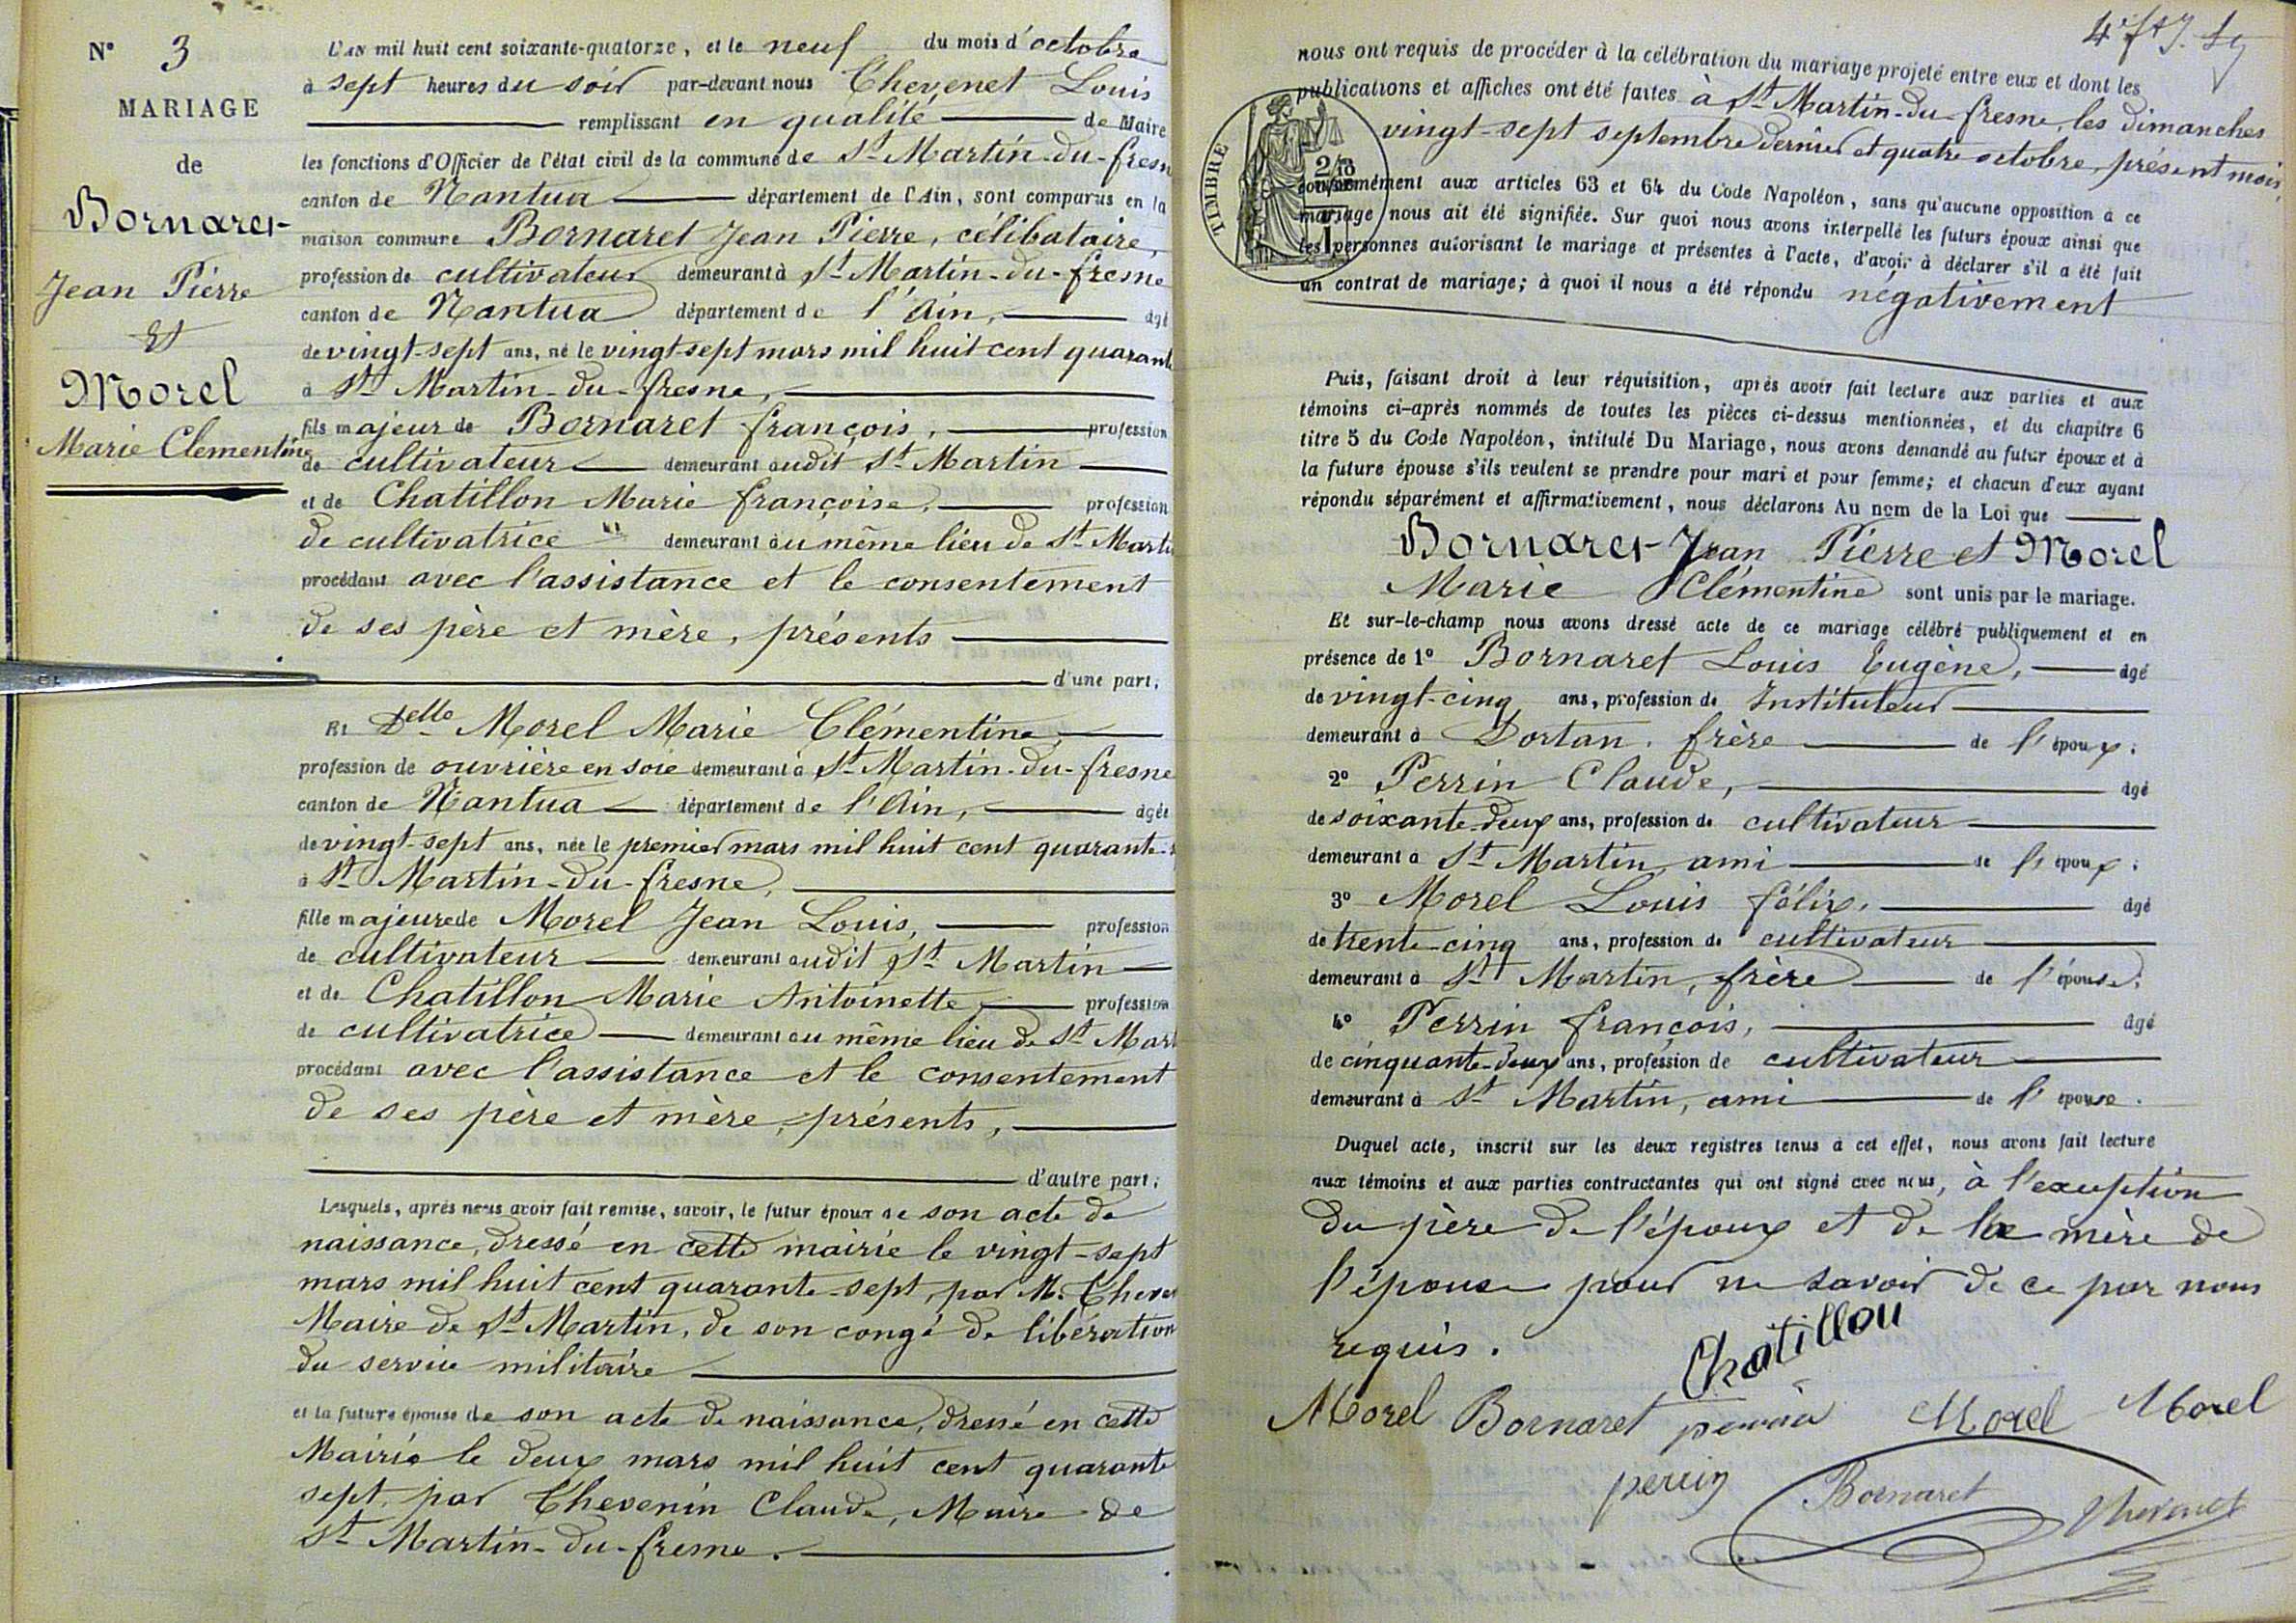 N° 3
MARIAGE
de
Bornaret
Jean Pierre
Et
Morel
Marie Clementine
L'AN mil huit cent soixante-quatorze, et le neuf du mois d'octobre
à sept heures du soir par-devant nous Chevenet Louis
remplissant en qualité de Maire
les fonctions d'Officier de l'état civil de la commune de St Martin-du-fresn
canton de Nantua département de l'Ain, sont comparus en la
maison commune Bornaret Jean Pierre, célibataire,
profession de cultivateur demeurant à St Martin-du-fresne
canton de Nantua département de l'Ain, âgé
de vingt-sept ans, né le vingt-sept mars mil huit cent quarant
à St Martin-du-fresne,
fils majeur de Bornaret françois, profession
de cultivateur demeurant audit St Martin
et de Chatillon Marie françoise, profession
de cultivatrice demeurant au même lieu de St Marti
procédant avec l'assistance et le consentement
de ses père et mère, présents
d'une part,
Et Delle Morel Marie Clémentine,
profession de ouvrière en soie demeurant à St Martin-du-fresne
canton de Nantua département de l'Ain, âgée
de vingt-sept ans, née le premier mars mil huit cent quarante-s
à St Martin-du-fresne,
fille majeure de Morel Jean Louis, profession
de cultivateur demeurant audit St Martin
et de Chatillon Marie Antoinette, profession
de cultivatrice demeurant au même lieu de St Mart
procédant avec l'assistance et le consentement
de ses père et mère, présents,
d'autre part;
Lesquels, après nous avoir fait remise, savoir, le futur époux de son acte de
naissance, dressé en cette mairie le vingt-sept
mars mil huit cent quarante-sept, par M. Cheve
Maire de St Martin, de son congé de libération
du service militaire
et la future épouse de son acte de naissance, dressé en cette
Mairie le deux mars mil huit cent quarante
sept, par Chevenin Claude, Maire de
St Martin-du-fresne.
nous ont requis de procéder à la célébration du mariage projeté entre eux et dont les
publications et affiches ont été faites à St Martin-du-fresne, les dimanches
vingt-sept septembre dernier et quatre octobre, présent mois,
TIMBRE
conformément aux articles 63 et 64 du Code Napoléon, sans qu'aucune opposition à ce
mariage nous ait été signifiée. Sur quoi nous avons interpellé les futurs époux ainsi que
les personnes autorisant le mariage et présentes à l'acte, d'avoir à déclarer s'il a été fait
un contrat de mariage; à quoi il nous a été répondu négativement
Puis, faisant droit à leur réquisition, après avoir fait lecture aux parties et aux
témoins ci-après nommés de toutes les pièces ci-dessus mentionnées, et du chapitre 6
titre 5 du Code Napoléon, intitulé Du Mariage, nous avons demandé au futur époux et à
la future épouse s'ils veulent se prendre pour mari et pour femme; et chacun d'eux ayant
répondu séparément et affirmativement, nous déclarons Au nom de la Loi que
Bornaret Jean Pierre et Morel
Marie Clémentine sont unis par le mariage.
Et sur-le-champ nous avons dressé acte de ce mariage célébré publiquement et en
présence de 1° Bornaret Louis Eugène, âgé
de vingt-cinq ans, profession de Instituteur
demeurant à Dortan, frère de l'époux;
2° Perrin Claude, âgé
de soixante-deux ans, profession de cultivateur
demeurant à St Martin, ami de l'époux;
3° Morel Louis félix, âgé
de trente-cinq ans, profession de cultivateur
demeurant à St Martin, frère de l'épouse;
4° Perrin françois, âgé
de cinquante-deux ans, profession de cultivateur
demeurant à St Martin, ami de l'épouse.
Duquel acte, inscrit sur les deux registres tenus à cet effet, nous avons fait lecture
aux témoins et aux parties contractantes qui ont signé avec nous, à l'exception
du père de l'époux et de la mère de
l'épouse pour ne savoir de ce par nous
requis.
Chatillon
Morel Bornaret perrin Morel Morel
perrin Bornaret Chevenet